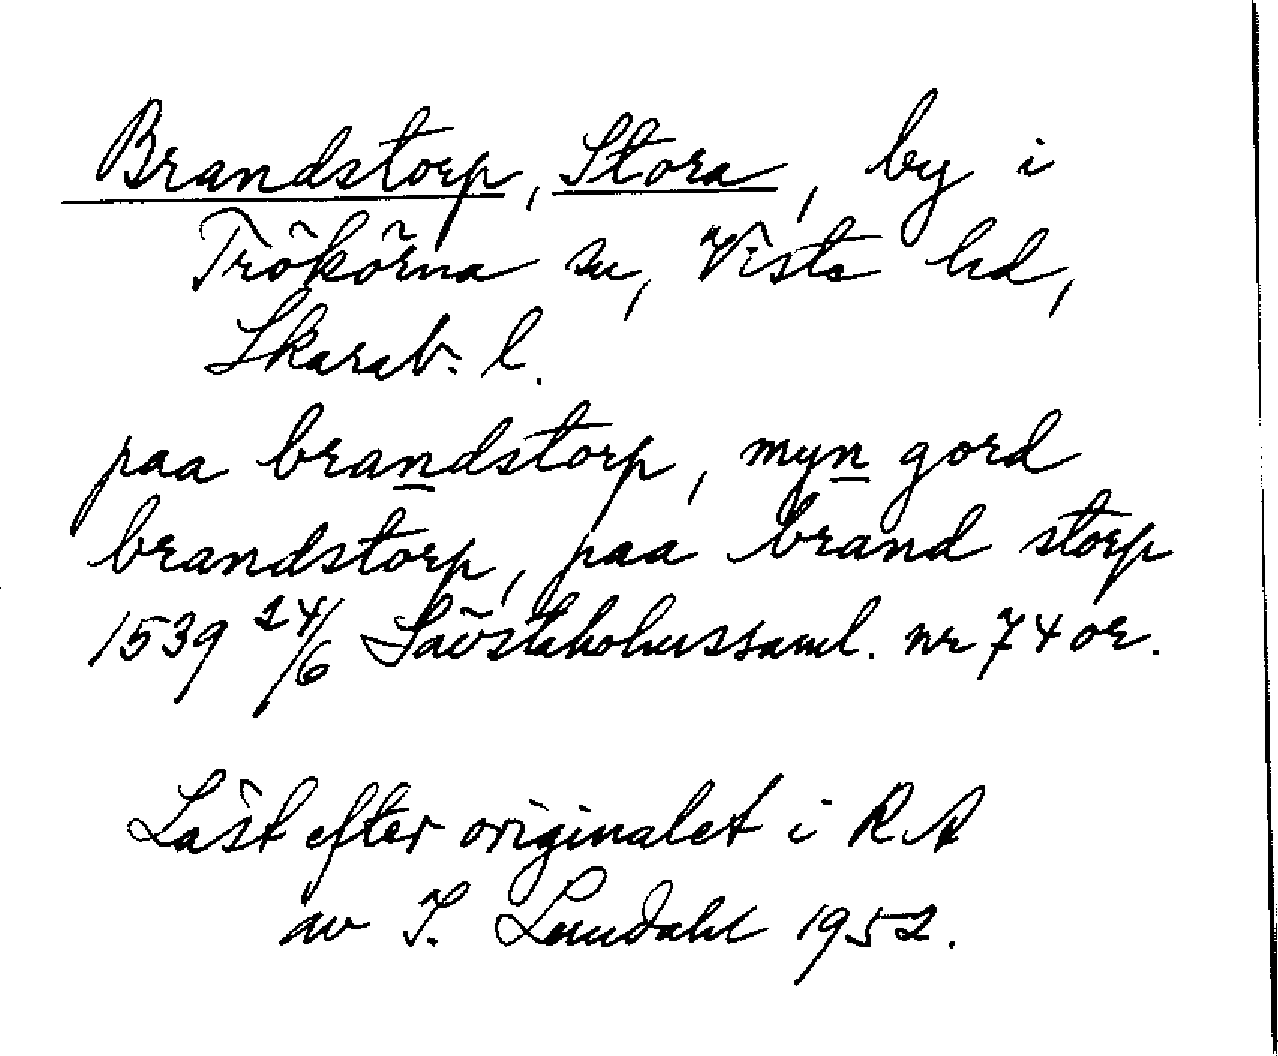 Brandstorp, Stora, by i
Trökörna sn, Viste hd,
Skarab. l.
paa brandstorp, myn gord
brandstorp, paa brand storp
1539 24/6 Lävstaholmssaml. nr 74 or.
Läst efter originalet i RA
av I. Lundahl 1952.